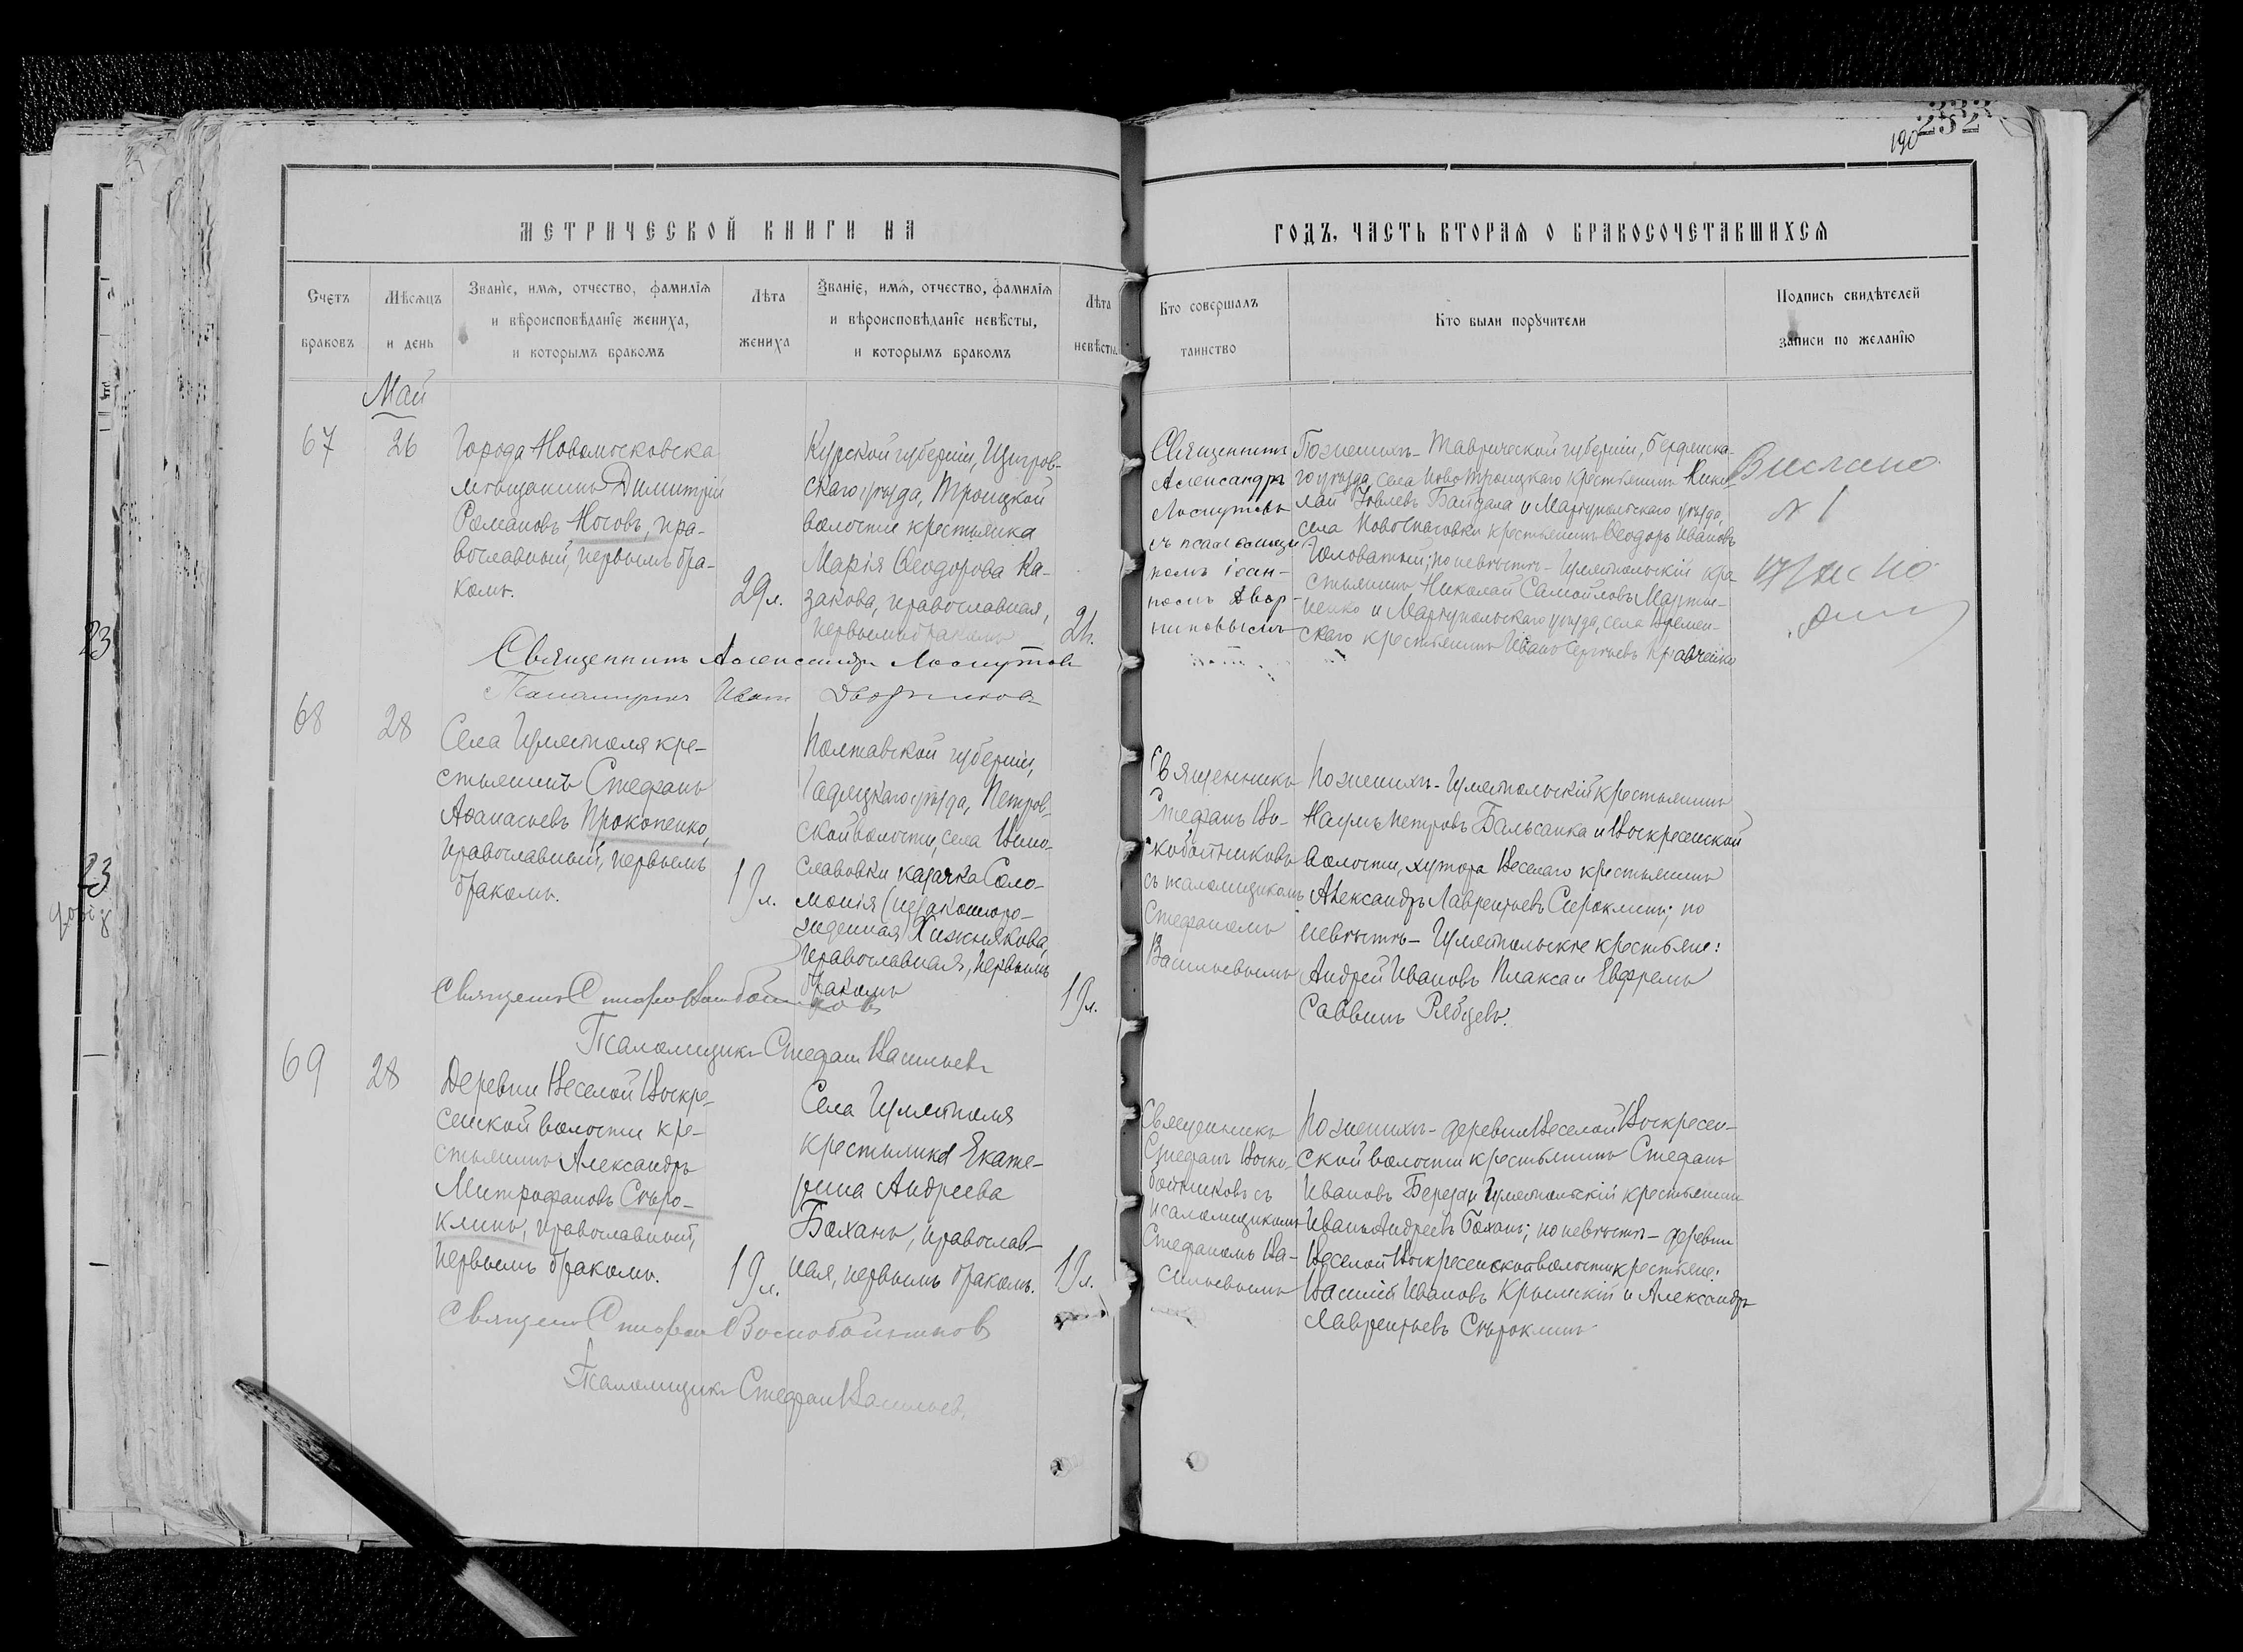 232
190
МЕТРИЧЕСКОЙ КНИГИ НА
ГОДЪ, ЧАСТЬ ВТОРАЯ О БРАКОСОЧЕТАВШИХСЯ
Счетъ браковъ
Мѣсяцъ и день
Званіе, имя, отчество, фамилія
и вѣроисповѣданіе жениха,
и которымъ бракомъ
Лѣта жениха
Званіе, имя, отчество, фамилія
и вѣроисповѣданіе невѣсты,
и которымъ бракомъ
Лѣта невѣсты
Кто совершалъ таинство
Кто были поручители
Подпись свидѣтелей
записи по желанію
Май
67
26
Города Новомосковска
мѣщанинъ Димитрій
Романовъ Носовъ, пра-
вославный, первымъ бра-
комъ.
29 л.
Курской губерніи, Щигров-
скаго уѣзда, Троицкой
волости крестьянка
Марія Ѳеодорова Ка-
закова, православная,
первымъ бракомъ
21.
Священникъ
Александръ
Лоскутовъ
съ псаломщи-
комъ Іоан-
номъ Двор-
никовымъ
По женихѣ - Таврической губерніи, Бердянска-
го уѣзда, села Ново Троицкаго крестьянинъ Нико-
лай Байдала и Маріупольскаго уѣзда,
села Новоспасовки крестьянинъ Ѳеодоръ Ивановъ
Головатый; по невѣстѣ - Гуляйпольскій кре-
стьянинъ Николай Самойловъ Марты-
ненко и Маріупольскаго уѣзда, села Времен-
скаго крестьянинъ Иванъ Сергѣевъ Кравченко
Выслано
№ 1
Священникъ Александръ Лоскутовъ
Пономарь Иванъ Дворниковъ
68
28
Села Гуляйполя кре-
стьянинъ Стефанъ
Аѳанасьевъ Прокопенко,
православный, первымъ
бракомъ.
19 л.
Полтавской губерніи,
Гадячскаго уѣзда, Петров-
ской волости, села
казачка Соло-
монія (незаконноро-
жденная) Хижнякова,
православная, первымъ
бракомъ
19 л.
Священникъ
Стефанъ Во-
скобойниковъ
съ псаломщикомъ
Стефаномъ
Васильевымъ
По женихѣ - Гуляйпольскій крестьянинъ
Наумъ Петровъ Бальсанка и Воскресенской
волости, хутора Веселаго крестьянинъ
Александръ Лаврентьевъ Сыроклинъ; по
невѣстѣ - Гуляйпольскіе крестьяне:
Андрей Ивановъ Плакса и Евфремъ
Саввинъ Рябцевъ.
Священ. Стефанъ Воскобойниковъ
Псаломщикъ Стефанъ Васильевъ
69
28
Деревни Веселой Воскре-
сенской волости кре-
стьянинъ Александръ
Митрофановъ Сыро-
клинъ, православный,
первымъ бракомъ.
19 л.
Села Гуляйполя
крестьянка Екате-
рина Андреева
Боханъ, православ-
ная, первымъ бракомъ.
19 л.
Священникъ
Стефанъ Воско-
бойниковъ съ
псаломщикомъ
Стефаномъ Ва-
сильевымъ
По женихѣ - деревни Веселой Воскресен-
ской волости крестьянинъ Стефанъ
Ивановъ Береза и Гуляйпольскій крестьянинъ
Иванъ Андреевъ Боханъ; по невѣстѣ - деревни
Веселой Воскресенской волости крестьяне:
Василій Ивановъ Крымскій и Александръ
Лаврентьевъ Сыроклинъ
Священ. Стефанъ Воскобойниковъ
Псаломщикъ Стефанъ Васильевъ